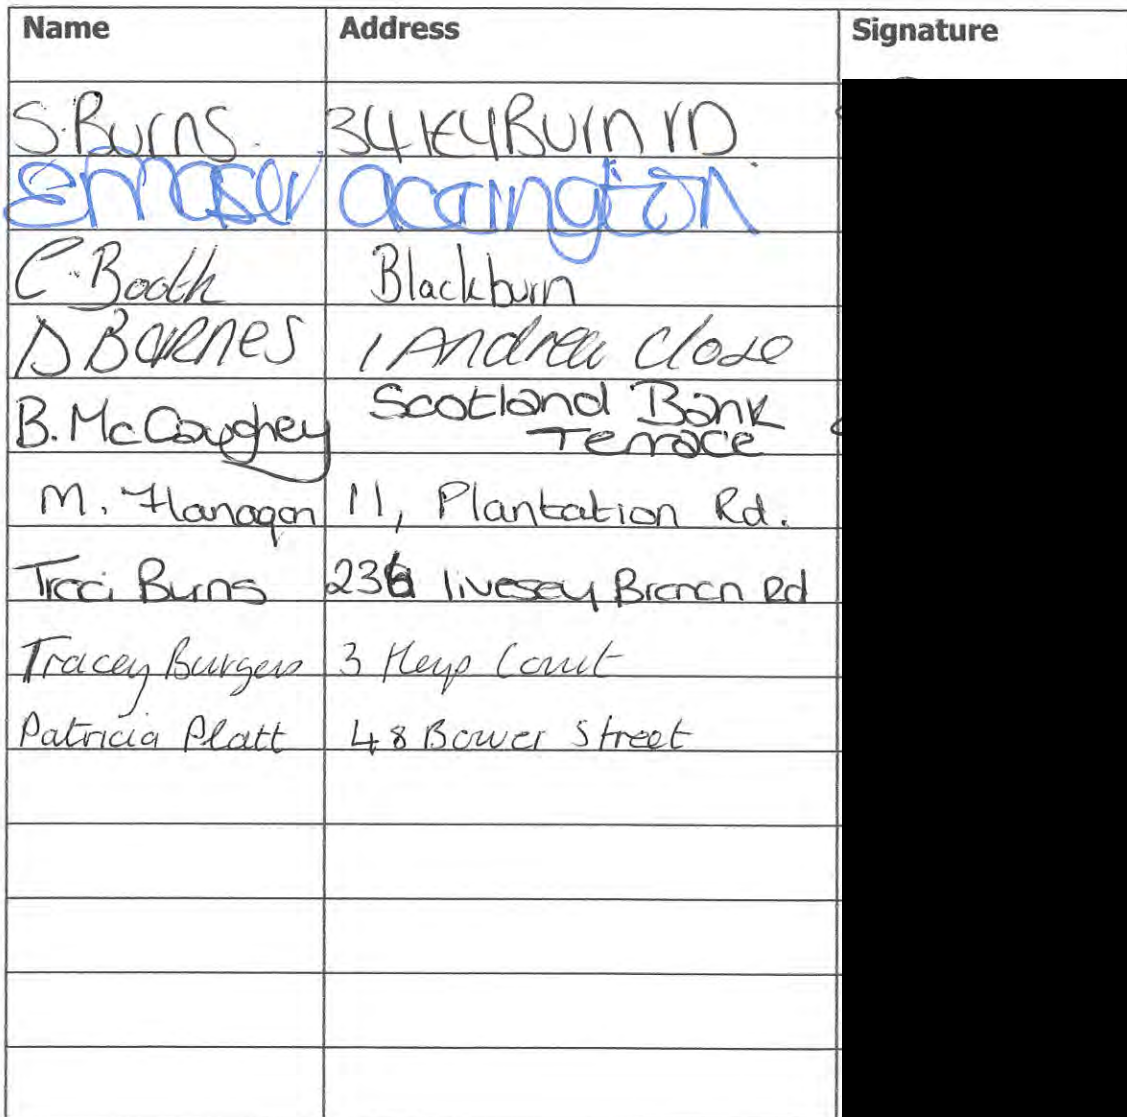 Name Address Signature
S. Burns. 34 Kyburn rD.
accrington
C. Booth Blackburn
D BARNES 1 Andrea Close
B. McCaughey Scotland Bank
Terrace
M. Flanagan 11, Plantation Rd.
Traci Burns 236 livesey Branch Rd
Tracey Burgess 3 Heys Court
Patricia Platt 48 Bower Street